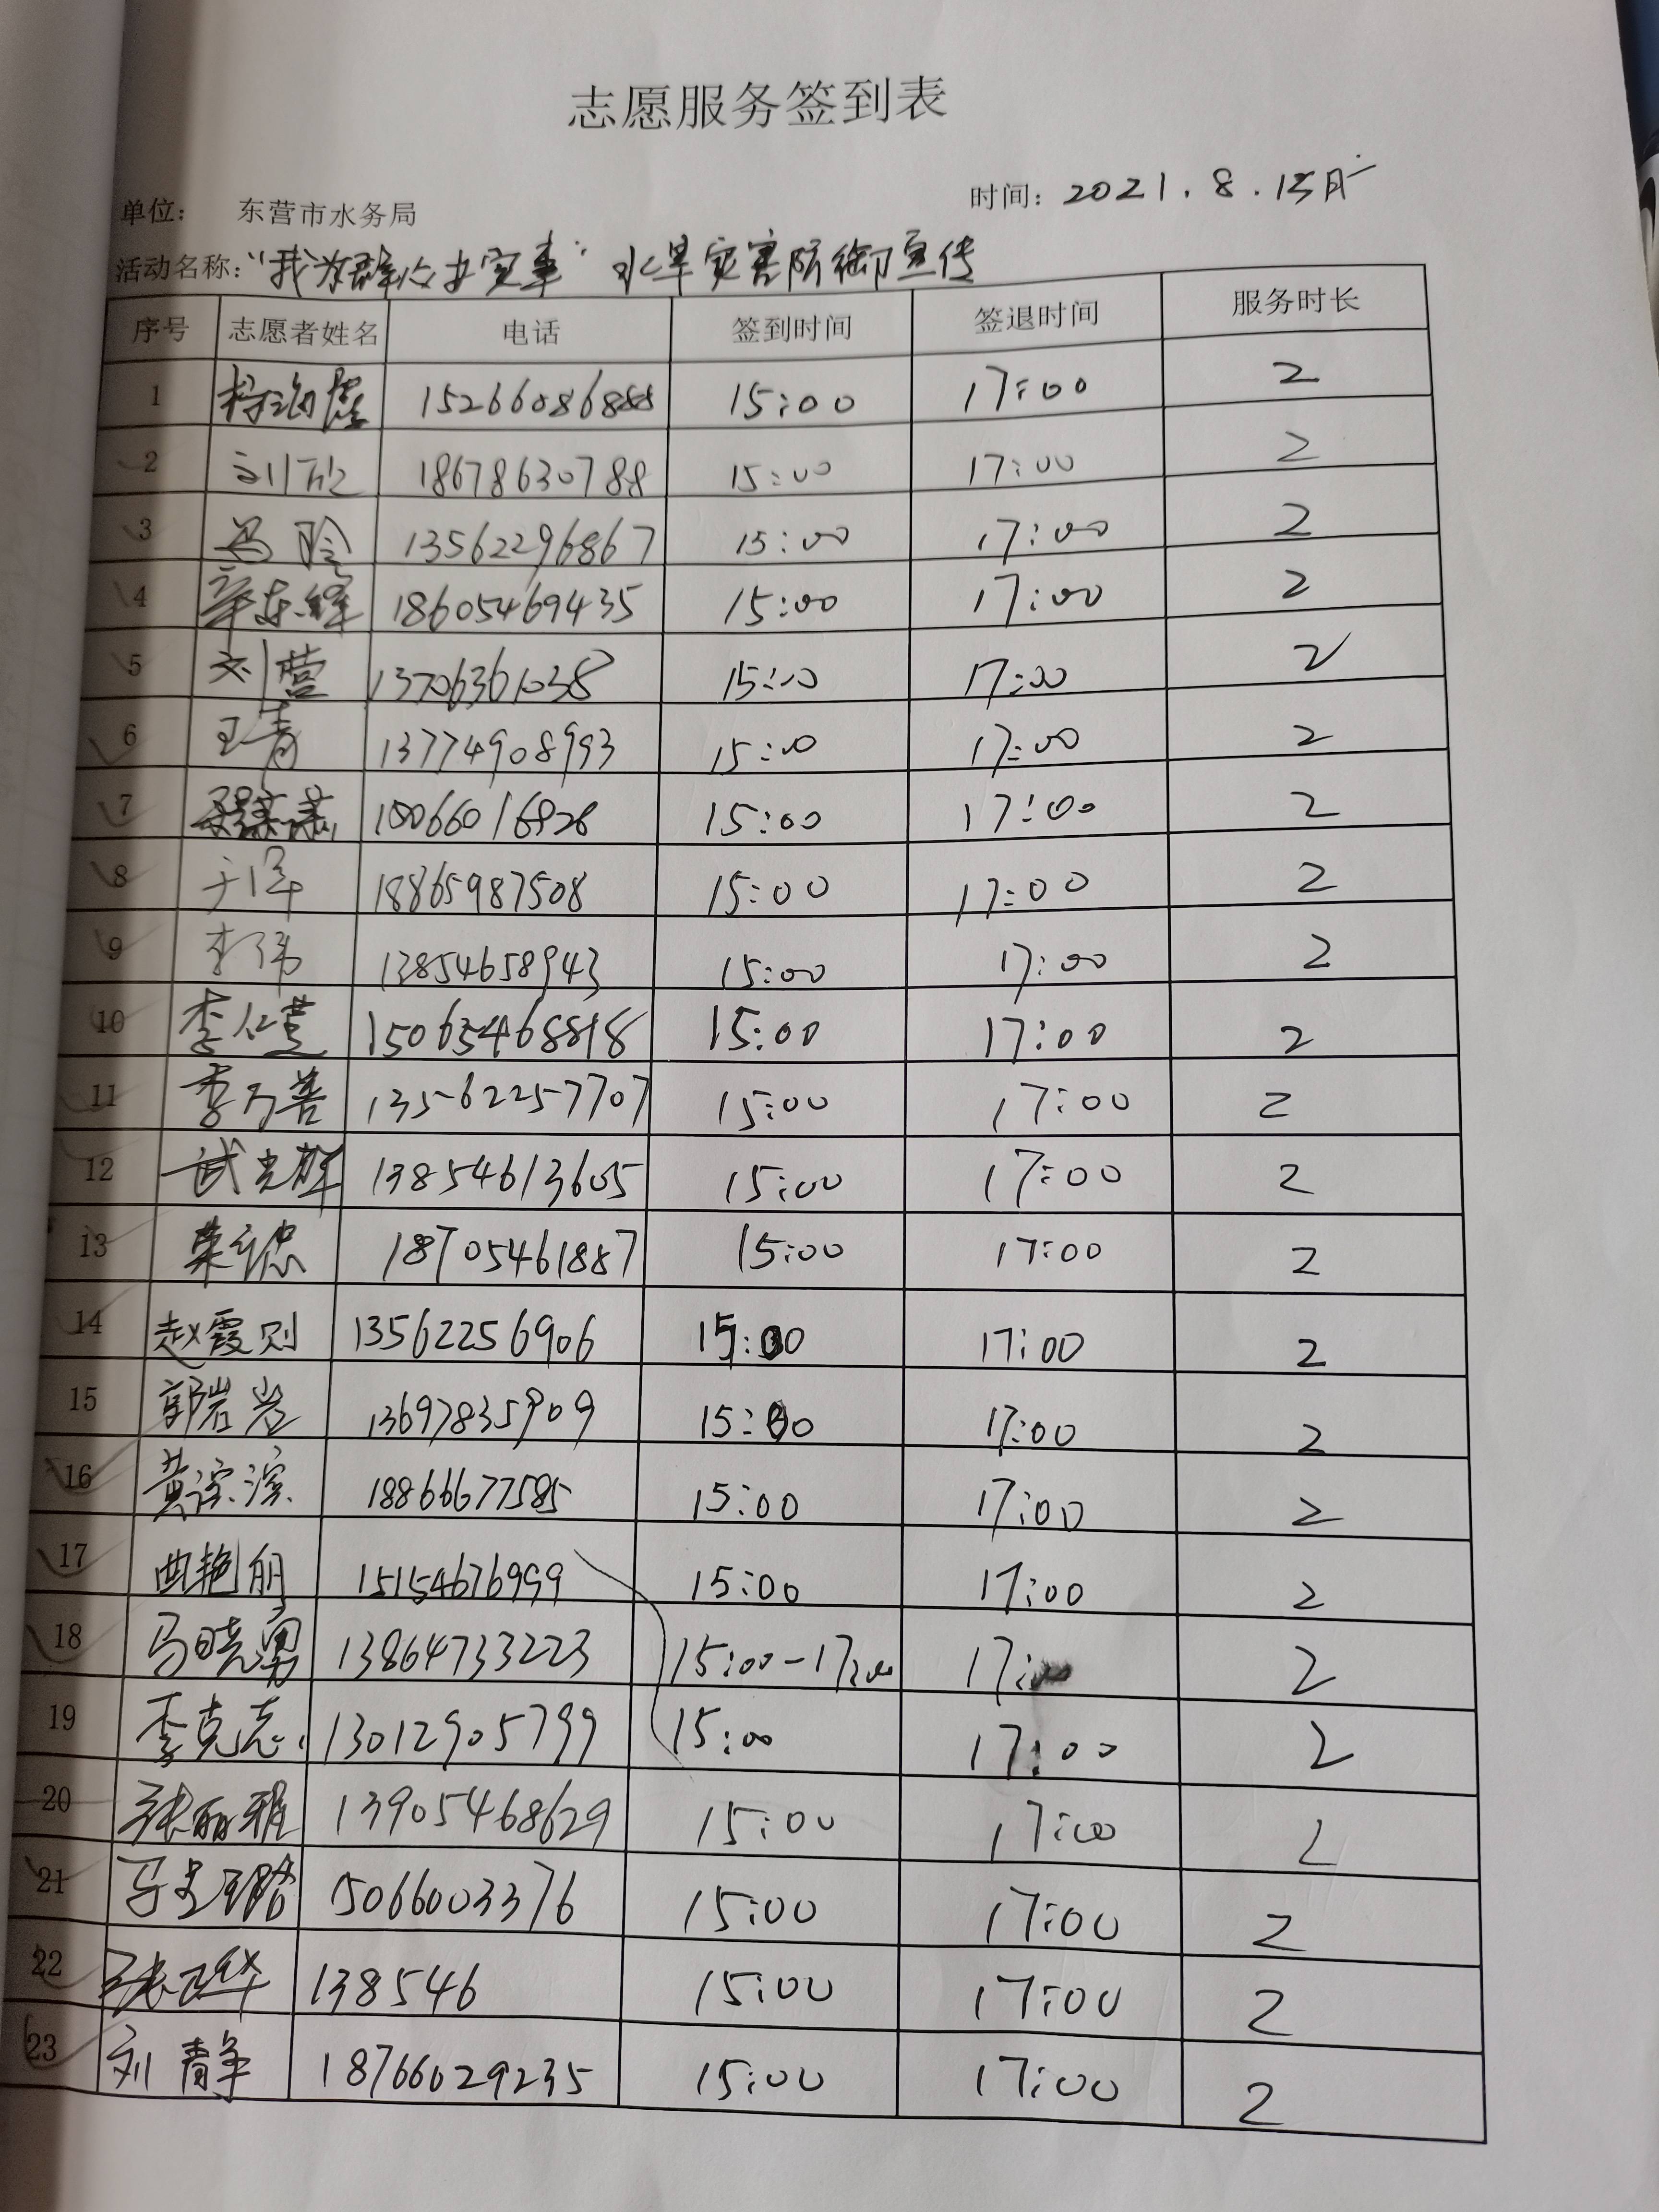 志愿服务签到表
单位： 东营市水务局 时间：2021.8.15
活动名称："我为群众办实事"水旱灾害防御宣传
序号 志愿者姓名 电话 签到时间 签退时间 服务时长
1 15:00 17:00 2
2 刘欣 18678630788 15:00 17:00 2
3 冯玲 13562296867 15:00 17:00 2
4 18605469435 15:00 17:00 2
5 刘营 13706361038 15:00 17:00 2
6 王青 13774908993 15:00 17:00 2
7 15:00 17:00 2
8 18865987508 15:00 17:00 2
9 李伟 13854658943 15:00 17:00 2
10 15065468818 15:00 17:00 2
11 李万善 13562257707 15:00 17:00 2
12 武光辉 13854613605 15:00 17:00 2
13 18705461887 15:00 17:00 2
14 赵霞则 13562256906 15:00 17:00 2
15 郭岩岩 13697835909 15:00 17:00 2
16 黄滨滨 18866677585 15:00 17:00 2
17 曲艳丽 15154676999 15:00 17:00 2
18 马晓勇 13864733223 15:00-17:00 17:00 2
19 李克志 13012905799 15:00 17:00 2
20 张丽雅 13905468629 15:00 17:00 2
21 15066003376 15:00 17:00 2
22 张卫华 138546 15:00 17:00 2
23 刘静 18766029235 15:00 17:00 2